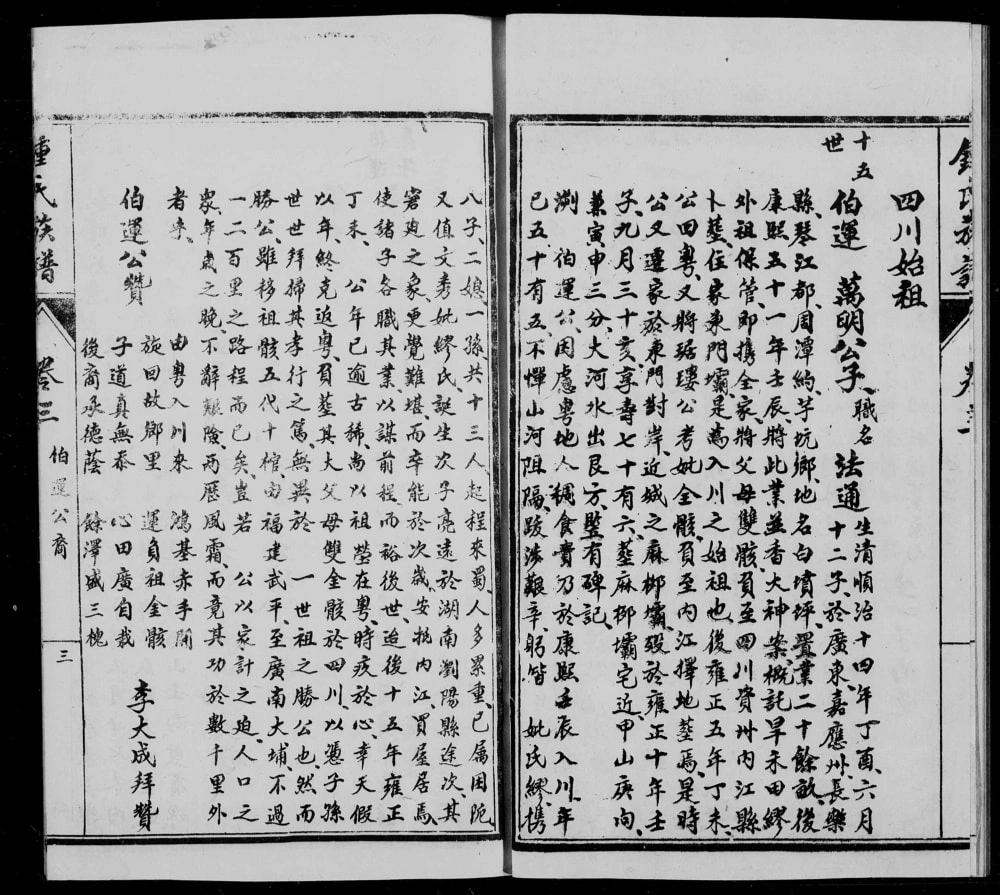 鍾氏族譜
卷三
四川始祖
十五世
伯運 萬明公子、職名 法通 生清順治十四年丁酉、六月
十二子、於廣東、嘉應州、長樂
縣、琴江都、周潭約、芋坑鄉、地名白墳坪、置業二十餘畝、後
康熙五十一年壬辰、將此業並香火神案、概託旱禾田繆
外祖保管、即携全家、將父母雙骸負至四川資州內江縣
卜塟、住家東門壩、是為入川之始祖也、後雍正五年丁未、
公回粵、又將琚瓊公考妣全骸、負至內江、擇地塟焉、是時
公又遷家於東門對岸、近城之麻柳壩、歿於雍正十年壬
子、九月三十亥、享壽七十有六、塟麻柳壩宅近、甲山庚向、
兼寅申三分、大河水出艮方、竪有碑記、
測 伯運公、因慮粵地人稠食貴、乃於康熙壬辰入川、年
已五十有五、不憚山河阻隔、跋涉艱辛、躬偕 妣氏繆、携
八子、二媳一孫、共十三人、起程來蜀、人多累重、已属困阨、
又值文秀妣繆氏、誕生次子亮遠於湖南瀏陽縣途次、其
窘廹之象、更覺難堪、而卒能於次歲、安抵內江、買屋居焉、
使諸子各職其業、以謀前程、而裕後世、迨後十五年雍正
丁未、 公年已逾古稀、尚以祖塋在粵、時疚於心、幸天假
以年、終克返粵、負塟其大父母雙金骸於四川、以憑子孫
世世拜掃、其孝行之篤、無異於 一世祖之勝公也、然而
勝公、雖移祖骸五代十棺、由福建武平、至廣南大埔、不過
一二百里之路程而已矣、豈若 公以家計之迫、人口之
衆、年歲之晚、不辭艱險、兩歷風霜、而竟其功於數千里外
者乎、
伯運公贊
由粵入川來 鴻基赤手開
旋回故鄉里 運負祖金骸
子道真無忝 心田廣自栽
後裔承德蔭 餘澤盛三槐
李大成拜贊
鍾氏族譜
卷三
伯運公裔
三